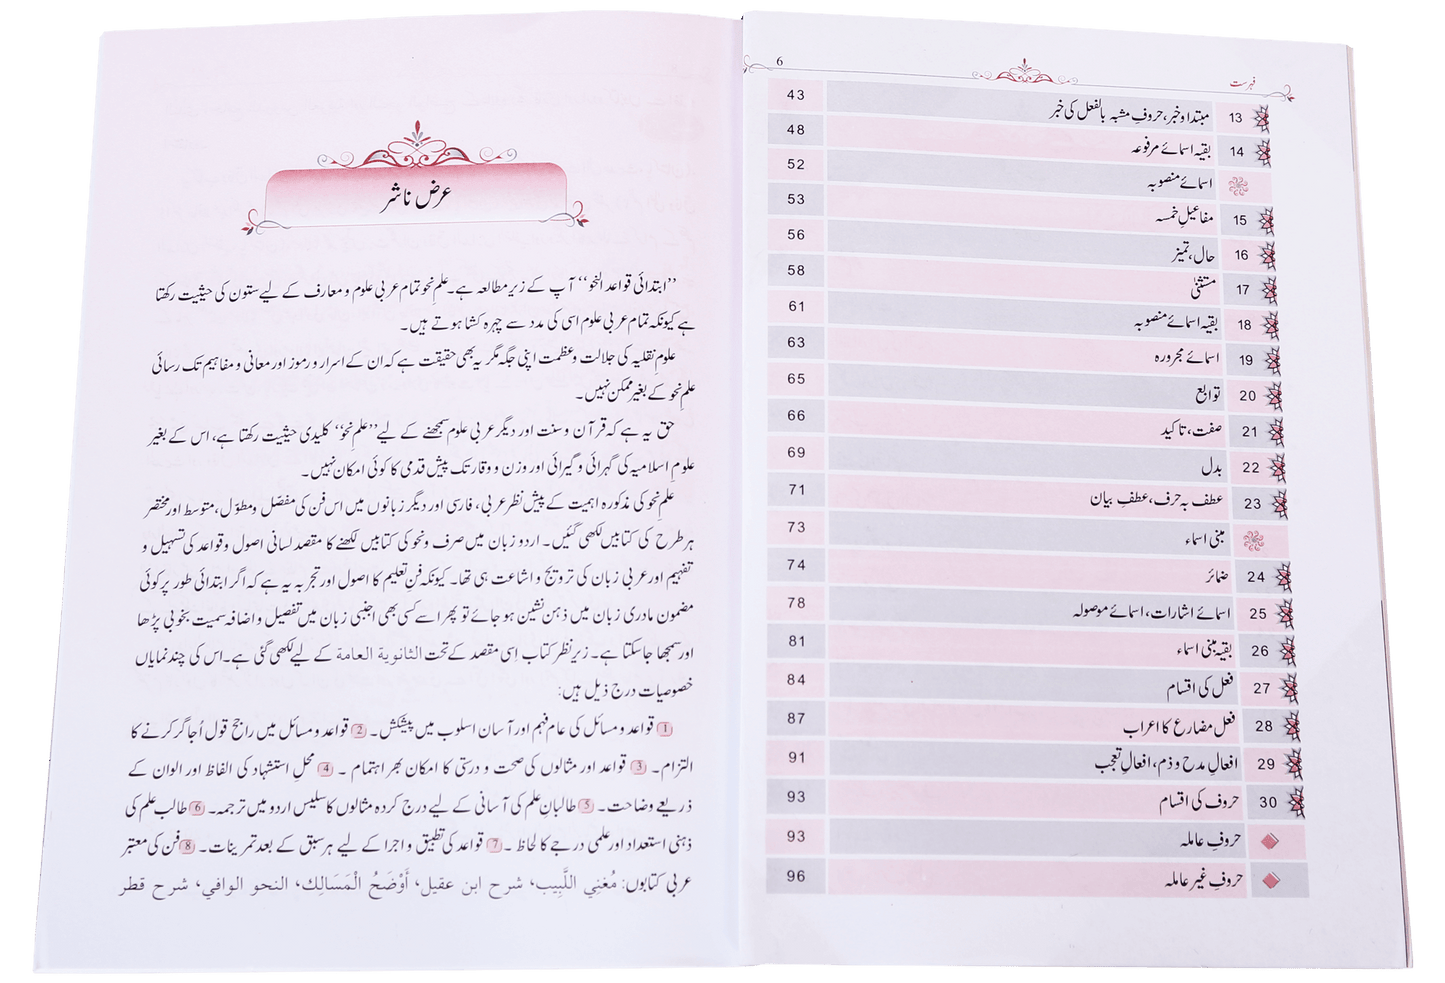 فہرست
6
13 مبتدا و خبر، حروفِ مشبہ بالفعل کی خبر 43
14 بقیہ اسمائے مرفوعہ 48
اسمائے منصوبہ 52
15 مفاعیلِ خمسہ 53
16 حال، تمیز 56
17 مستثنیٰ 58
18 بقیہ اسمائے منصوبہ 61
19 اسمائے مجرورہ 63
20 توابع 65
21 صفت، تاکید 66
22 بدل 69
23 عطف بہ حرف، عطفِ بیان 71
مبنی اسماء 73
24 ضمائر 74
25 اسمائے اشارات، اسمائے موصولہ 78
26 بقیہ مبنی اسماء 81
27 فعل کی اقسام 84
28 فعل مضارع کا اعراب 87
29 افعالِ مدح و ذم، افعالِ تعجب 91
30 حروف کی اقسام 93
حروفِ عاملہ 93
حروفِ غیر عاملہ 96
عرض ناشر
’’ابتدائی قواعد النحو‘‘ آپ کے زیر مطالعہ ہے۔ علمِ نحو تمام عربی علوم و معارف کے لیے ستون کی حیثیت رکھتا
ہے کیونکہ تمام عربی علوم اسی کی مدد سے چہرہ کشا ہوتے ہیں۔
علومِ نقلیہ کی جلالت و عظمت اپنی جگہ مگر یہ بھی حقیقت ہے کہ ان کے اسرار و رموز اور معانی و مفاہیم تک رسائی
علمِ نحو کے بغیر ممکن نہیں۔
حق یہ ہے کہ قرآن و سنت اور دیگر عربی علوم سمجھنے کے لیے ’’علمِ نحو‘‘ کلیدی حیثیت رکھتا ہے، اس کے بغیر
علومِ اسلامیہ کی گہرائی و گیرائی اور وزن و وقار تک پیش قدمی کا کوئی امکان نہیں۔
علمِ نحو کی مذکورہ اہمیت کے پیش نظر عربی، فارسی اور دیگر زبانوں میں اس فن کی مفصّل و مطوّل، متوسط اور مختصر
ہر طرح کی کتابیں لکھی گئیں۔ اردو زبان میں صرف و نحو کی کتابیں لکھنے کا مقصد لسانی اصول و قواعد کی تسہیل و
تفہیم اور عربی زبان کی ترویج و اشاعت ہی تھا۔ کیونکہ فنِ تعلیم کا اصول اور تجربہ یہ ہے کہ اگر ابتدائی طور پر کوئی
مضمون مادری زبان میں ذہن نشین ہو جائے تو پھر اسے کسی بھی اجنبی زبان میں تفصیل و اضافہ سمیت بخوبی پڑھا
اور سمجھا جا سکتا ہے۔ زیر نظر کتاب اِسی مقصد کے تحت الثانویة العامة کے لیے لکھی گئی ہے۔ اس کی چند نمایاں
خصوصیات درج ذیل ہیں:
1 قواعد و مسائل کی عام فہم اور آسان اسلوب میں پیشکش۔ 2 قواعد و مسائل میں راجح قول اُجاگر کرنے کا
التزام۔ 3 قواعد اور مثالوں کی صحت و درستی کا امکان بھر اہتمام۔ 4 محلِ استشہاد کی الفاظ اور الوان کے
ذریعے وضاحت۔ 5 طالبانِ علم کی آسانی کے لیے درج کردہ مثالوں کا سلیس اردو میں ترجمہ۔ 6 طالب علم کی
ذہنی استعداد اور علمی درجے کا لحاظ۔ 7 قواعد کی تطبیق و اجرا کے لیے ہر سبق کے بعد تمرینات۔ 8 فن کی معتبر
عربی کتابوں: مُغْنِي اللَّبِيب، شرح ابن عقيل، أَوْضَحُ الْمَسَالِك، النحو الوافي، شرح قطر